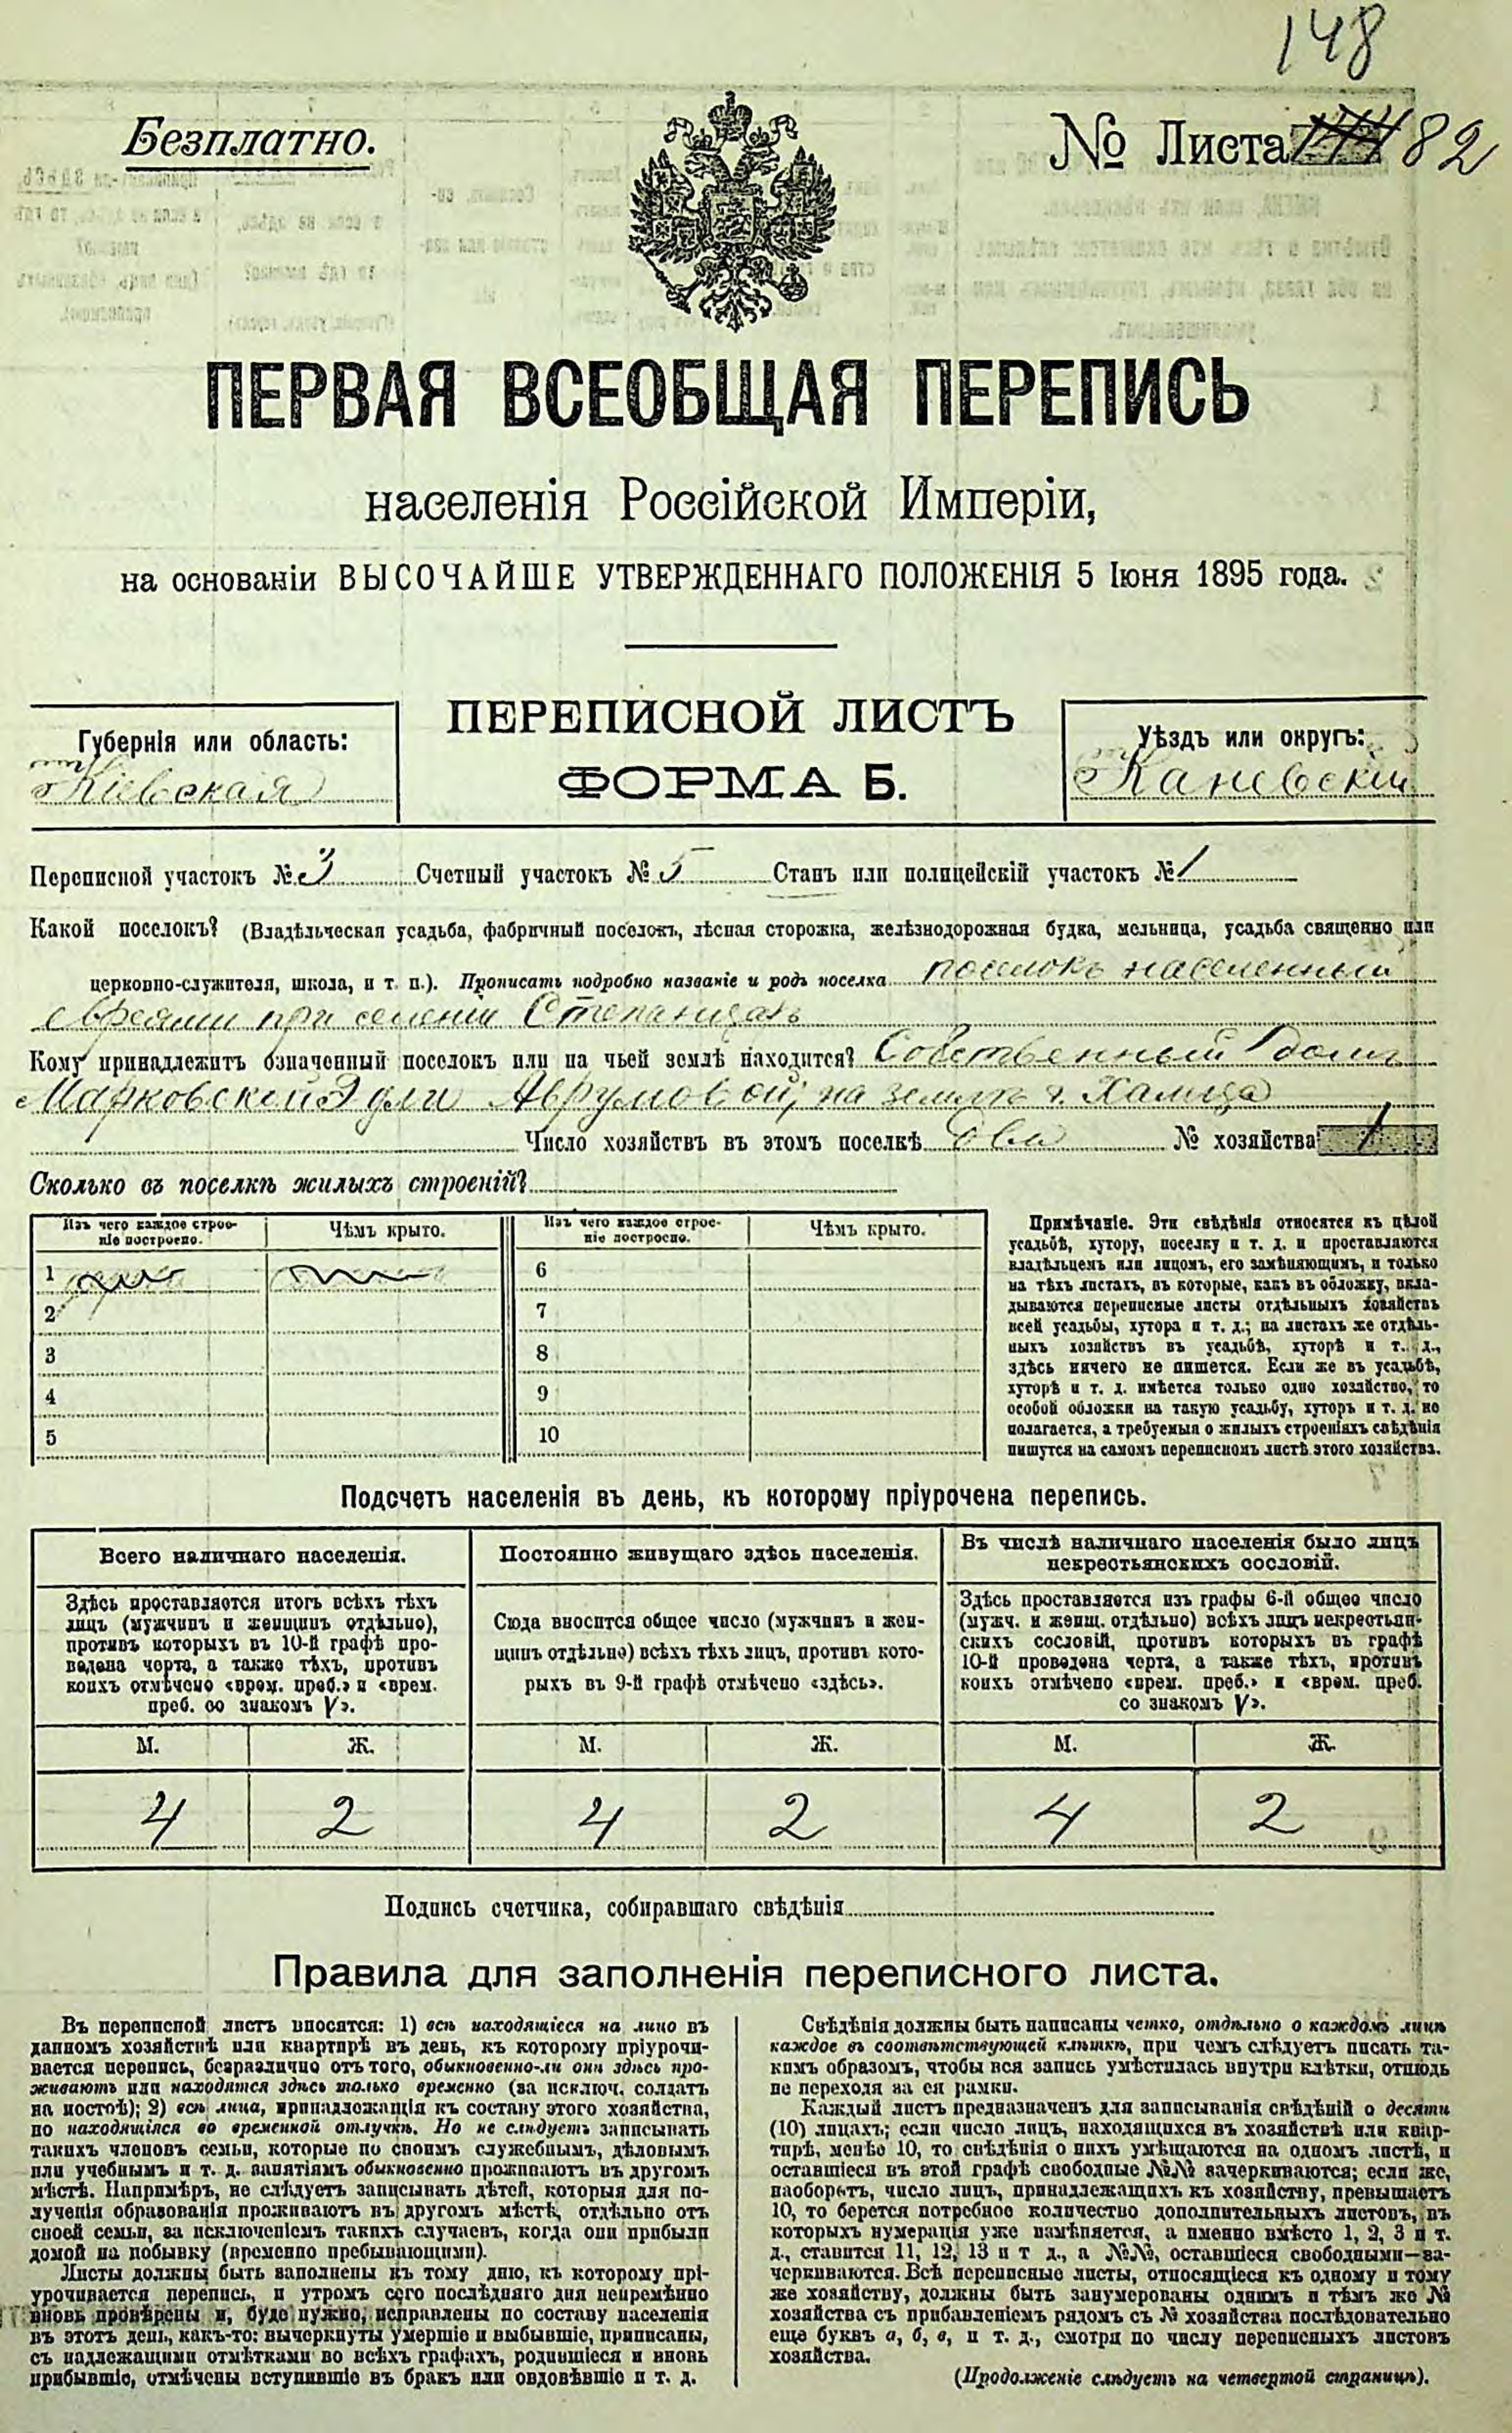 148
Безплатно.
№ Листа 82
ПЕРВАЯ ВСЕОБЩАЯ ПЕРЕПИСЬ
населенія Россійской Имперіи,
на основаніи ВЫСОЧАЙШЕ УТВЕРЖДЕННАГО ПОЛОЖЕНІЯ 5 Іюня 1895 года.
ПЕРЕПИСНОЙ ЛИСТЪ
ФОРМА Б.
Губернія или область:
Кіевская
Уѣздъ или округъ:
Каневскій
Переписной участокъ № 3 Счетный участокъ № 5 Станъ или полицейскій участокъ № 1
Какой поселокъ? (Владѣльческая усадьба, фабричный поселокъ, лѣсная сторожка, желѣзнодорожная будка, мельница, усадьба священно или
церковно-служителя, школа, и т. п.). Прописать подробно названіе и родъ поселка поселокъ населенный
евреями при селеніи Степанцахъ
Кому принадлежитъ означенный поселокъ или на чьей землѣ находится? Собственный домъ
Марковской Эдли Аврумовой, на землѣ г. Халица
Число хозяйствъ въ этомъ поселкѣ два № хозяйства 1
Сколько въ поселкѣ жилыхъ строеній?
Изъ чего каждое строе-
ніе построено.
Чѣмъ крыто.
Изъ чего каждое строе-
ніе построено.
Чѣмъ крыто.
1
6
2
7
3
8
4
9
5
10
Примѣчаніе. Эти свѣдѣнія относятся къ цѣлой
усадьбѣ, хутору, поселку и т. д. и проставляются
владѣльцемъ или лицомъ, его замѣняющимъ, и только
на тѣхъ листахъ, въ которые, какъ въ обложку, вкла-
дываются переписные листы отдѣльныхъ хозяйствъ
всей усадьбы, хутора и т. д.; на листахъ же отдѣль-
ныхъ хозяйствъ въ усадьбѣ, хуторѣ и т. д.,
здѣсь ничего не пишется. Если же въ усадьбѣ,
хуторѣ и т. д. имѣется только одно хозяйство, то
особой обложки на такую усадьбу, хуторъ и т. д. не
полагается, а требуемыя о жилыхъ строеніяхъ свѣдѣнія
пишутся на самомъ переписномъ листѣ этого хозяйства.
Подсчетъ населенія въ день, къ которому пріурочена перепись.
Всего наличнаго населенія.
Постоянно живущаго здѣсь населенія.
Въ числѣ наличнаго населенія было лицъ
некрестьянскихъ сословій.
Здѣсь проставляется итогъ всѣхъ тѣхъ
лицъ (мужчинъ и женщинъ отдѣльно),
противъ которыхъ въ 10-й графѣ про-
ведена черта, а также тѣхъ, противъ
коихъ отмѣчено «врем. преб.» и «врем.
преб. со знакомъ V».
Сюда вносится общее число (мужчинъ и жен-
щинъ отдѣльно) всѣхъ тѣхъ лицъ, противъ кото-
рыхъ въ 9-й графѣ отмѣчено «здѣсь».
Здѣсь проставляется изъ графы 6-й общее число
(мужч. и женщ. отдѣльно) всѣхъ лицъ некрестьян-
скихъ сословій, противъ которыхъ въ графѣ
10-й проведена черта, а также тѣхъ, противъ
коихъ отмѣчено «врем. преб.» и «врем. преб.
со знакомъ V».
М. Ж. М. Ж. М. Ж.
4 2 4 2 4 2
Подпись счетчика, собиравшаго свѣдѣнія
Правила для заполненія переписного листа.
Въ переписной листъ вносятся: 1) всѣ находящіеся на лицо въ
данномъ хозяйствѣ или квартирѣ въ день, къ которому пріурочи-
вается перепись, безразлично отъ того, обыкновенно-ли они здѣсь про-
живаютъ или находятся здѣсь только временно (за исключ. солдатъ
на постоѣ); 2) всѣ лица, принадлежащія къ составу этого хозяйства,
но находящіяся во временной отлучкѣ. Но не слѣдуетъ записывать
такихъ членовъ семьи, которые по своимъ служебнымъ, дѣловымъ
или учебнымъ и т. д. занятіямъ обыкновенно проживаютъ въ другомъ
мѣстѣ. Напримѣръ, не слѣдуетъ записывать дѣтей, которыя для по-
лученія образованія проживаютъ въ другомъ мѣстѣ, отдѣльно отъ
своей семьи, за исключеніемъ такихъ случаевъ, когда они прибыли
домой на побывку (временно пребывающими).
Листы должны быть заполнены къ тому дню, къ которому прі-
урочивается перепись, и утромъ сего послѣдняго дня непремѣнно
вновь провѣрены и, буде нужно, исправлены по составу населенія
въ этотъ день, какъ-то: вычеркнуты умершіе и выбывшіе, приписаны,
съ надлежащими отмѣтками во всѣхъ графахъ, родившіеся и вновь
прибывшіе, отмѣчены вступившіе въ бракъ или овдовѣвшіе и т. д.
Свѣдѣнія должны быть написаны четко, отдѣльно о каждомъ лицѣ
каждое въ соотвѣтствующей клѣткѣ, при чемъ слѣдуетъ писать та-
кимъ образомъ, чтобы вся запись умѣстилась внутри клѣтки, отнюдь
не переходя за ея рамки.
Каждый листъ предназначенъ для записыванія свѣдѣній о десяти
(10) лицахъ; если число лицъ, находящихся въ хозяйствѣ или квар-
тирѣ, менѣе 10, то свѣдѣнія о нихъ умѣщаются на одномъ листѣ, и
оставшіеся въ этой графѣ свободные №№ зачеркиваются; если же,
наоборотъ, число лицъ, принадлежащихъ къ хозяйству, превышаетъ
10, то берется потребное количество дополнительныхъ листовъ, въ
которыхъ нумерація уже измѣняется, а именно вмѣсто 1, 2, 3 и т.
д., ставится 11, 12, 13 и т д., а №№, оставшіеся свободными—за-
черкиваются. Всѣ переписные листы, относящіеся къ одному и тому
же хозяйству, должны быть занумерованы однимъ и тѣмъ же №
хозяйства съ прибавленіемъ рядомъ съ № хозяйства послѣдовательно
еще буквъ а, б, в, и т. д., смотря по числу переписныхъ листовъ
хозяйства.
(Продолженіе слѣдуетъ на четвертой страницѣ).